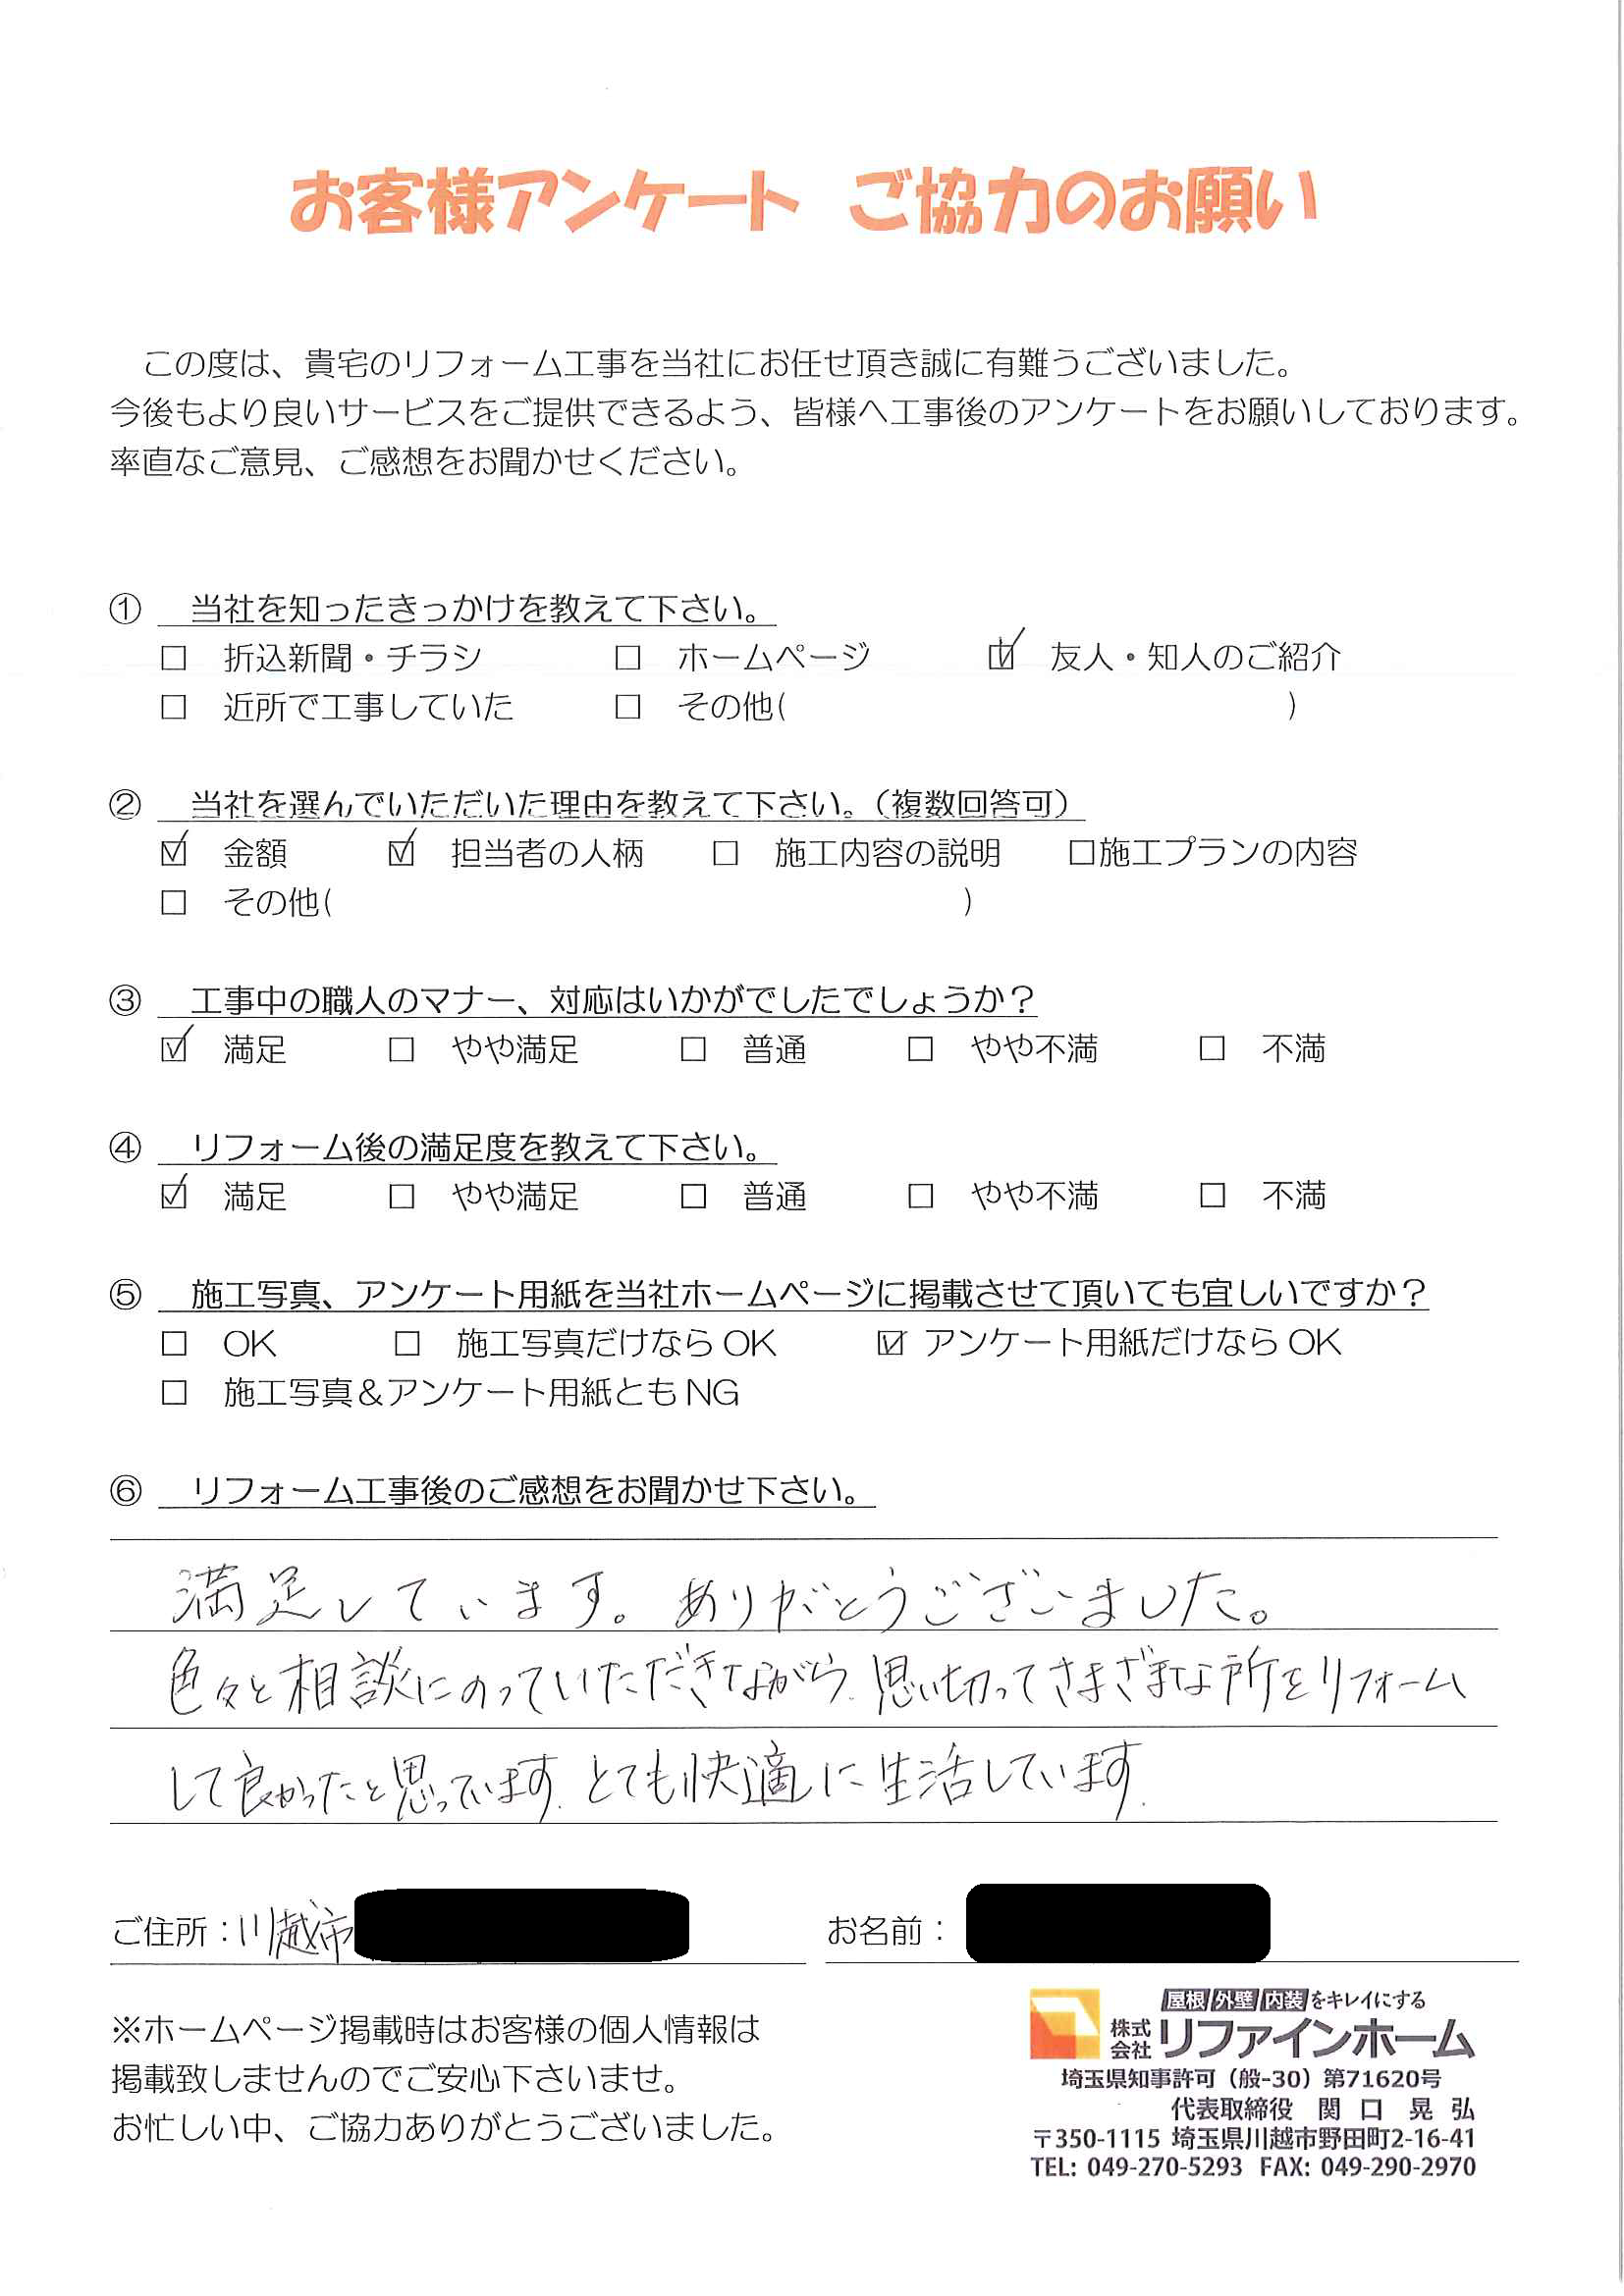 お客様アンケート ご協力のお願い
この度は、貴宅のリフォーム工事を当社にお任せ頂き誠に有難うございました。
今後もより良いサービスをご提供できるよう、皆様へ工事後のアンケートをお願いしております。
率直なご意見、ご感想をお聞かせください。
① 当社を知ったきっかけを教えて下さい。
□ 折込新聞・チラシ □ ホームページ ☑ 友人・知人のご紹介
□ 近所で工事していた □ その他( )
② 当社を選んでいただいた理由を教えて下さい。(複数回答可)
☑ 金額 ☑ 担当者の人柄 □ 施工内容の説明 □施工プランの内容
□ その他( )
③ 工事中の職人のマナー、対応はいかがでしたでしょうか?
☑ 満足 □ やや満足 □ 普通 □ やや不満 □ 不満
④ リフォーム後の満足度を教えて下さい。
☑ 満足 □ やや満足 □ 普通 □ やや不満 □ 不満
⑤ 施工写真、アンケート用紙を当社ホームページに掲載させて頂いても宜しいですか?
□ OK □ 施工写真だけならOK ☑ アンケート用紙だけならOK
□ 施工写真&アンケート用紙ともNG
⑥ リフォーム工事後のご感想をお聞かせ下さい。
満足しています。ありがとうございました。
色々と相談にのっていただきながら、思い切ってさまざまな所をリフォーム
して良かったと思っています。とても快適に生活しています。
ご住所:川越市 お名前:
※ホームページ掲載時はお客様の個人情報は
掲載致しませんのでご安心下さいませ。
お忙しい中、ご協力ありがとうございました。
屋根 外壁 内装 をキレイにする
株式会社 リファインホーム
埼玉県知事許可(般-30)第71620号
代表取締役 関口 晃弘
〒350-1115 埼玉県川越市野田町2-16-41
TEL: 049-270-5293 FAX: 049-290-2970